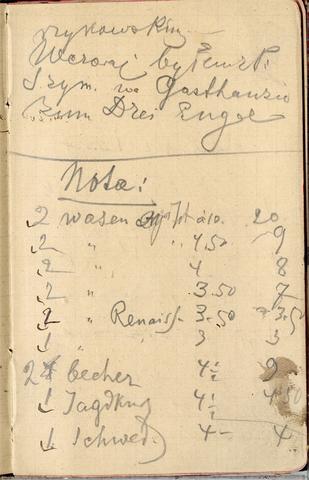 Wczoraj był
Szym. w Gasthauzie
zum Drei Engel
Nota:
2 Wasen à 10. 20
2 " " 4.50 9
2 " 4 8
2 " 3.50 7
2 " Renaiss. 3.50
1 " 3 3
2 Becher 4½ 9
1 Jagdkrug 4½ 4.50
1 Schwed. 4 – 4